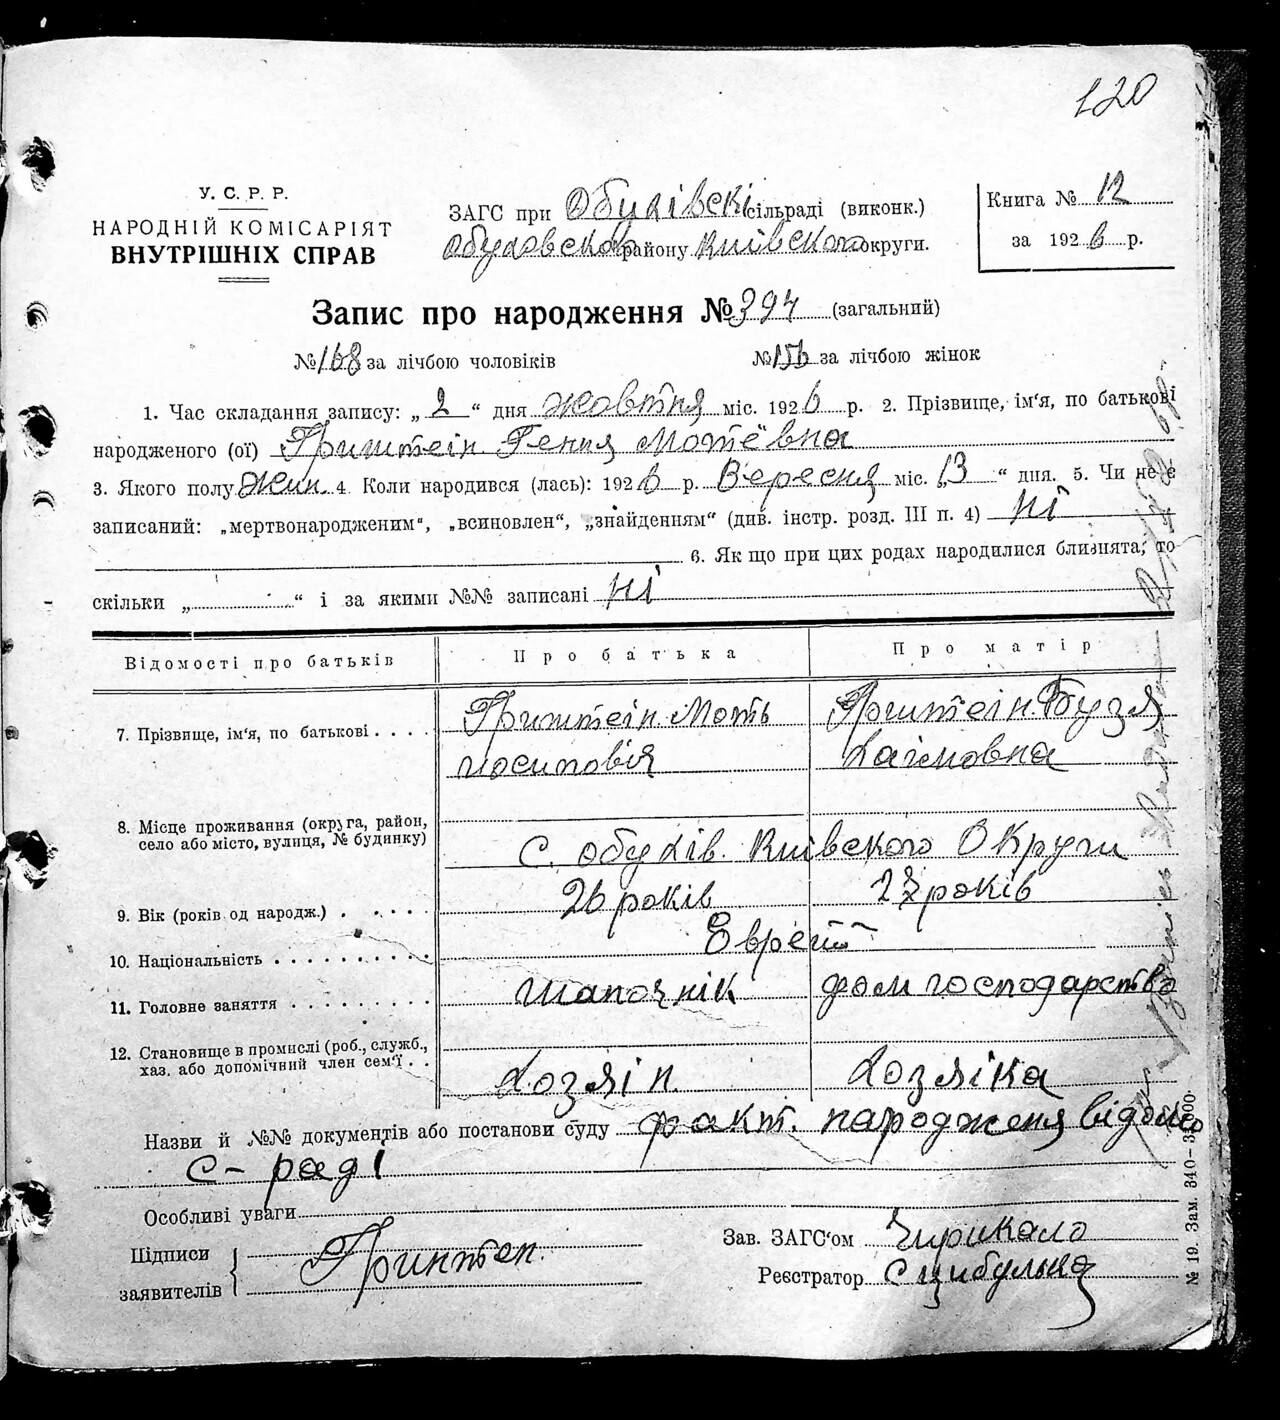 120
У. С. Р. Р.
НАРОДНІЙ КОМІСАРІЯТ
ВНУТРІШНІХ СПРАВ
ЗАГС при Обухівскі сільраді (виконк.)
Обуховского району Київского округи.
Книга № 12
за 1926 р.
Запис про народження № 394 (загальний)
№ 168 за лічбою чоловіків № 156 за лічбою жінок
1. Час складання запису: „ 2 “ дня жовтня міс. 1926 р. 2. Прізвище, ім'я, по батькові
народженого (ої) Гринштеін Геня Мотёвна
3. Якого полу Жин. 4. Коли народився (лась): 1926 р. Вересня міс. „13 “ дня. 5. Чи не є
записаний: „мертвонародженим“, „всиновлен“, „знайденням“ (див. інстр. розд. III п. 4) Ні
6. Як що при цих родах народилися близнята, то
скільки „ “ і за якими №№ записані Ні
Відомості про батьків Про батька Про матір
7. Прізвище, ім'я, по батькові Гринштеін Моть Гринштеін Бузя
иосиповія Хаімовна
8. Місце проживання (округа, район,
село або місто, вулиця, № будинку) С. обухів. Київского Округи
9. Вік (років од народж.) 26 років 27 років
10. Національність Євреіи
11. Головне заняття шапочнік дом господарство
12. Становище в промислі (роб., служб.,
хаз. або допомічний член сем'ї Хозяін. Хозяіка
Назви й №№ документів або постанови суду факт. народженя відомо
с-раді
Особливі уваги
Підписи
заявителів Гринтеп.
Зав. ЗАГС'ом Чирикало
Реєстратор С цибульна
№ 19. Зам. 340-